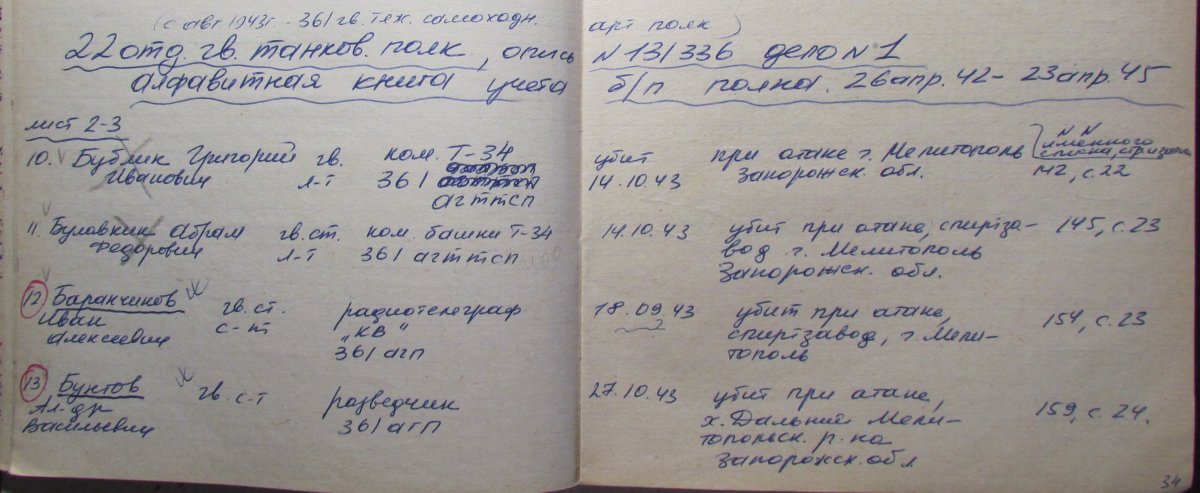 (с авг 1943г - 361 гв. тяж. самоходн. арт. полк)
22 отд. гв. танков. полк, опись N 131336 дело N 1
алфавитная книга учета б/п полка. 26 апр. 42 - 23 апр. 45
лист 2-3
10. Бублик Григорий гв. ком. Т-34 убит при атаке г. Мелитополь N N именного
Иванович л-т 361 14.10.43 Запорожск. обл. списка,
агттсп 142, с. 22
11. Булавкин Абрам гв. ст. ком. башни Т-34 14.10.43 убит при атаке, спиртза- 145, с. 23
Федорович л-т 361 агттсп вод г. Мелитополь
Запорожск. обл.
12 Баранчиков гв. ст. радиотелеграф 18.09.43 убит при атаке, 154, с. 23
Иван с-нт "КВ" спиртзавод, г. Мели-
Алексеевич 361 агп тополь
13 Бухтов гв. с-т разведчик 27.10.43 убит при атаке, 159, с. 24.
Ал-др 361 агп х. Дальний Мели-
Васильевич топольск. р-на
Запорожск. обл
34